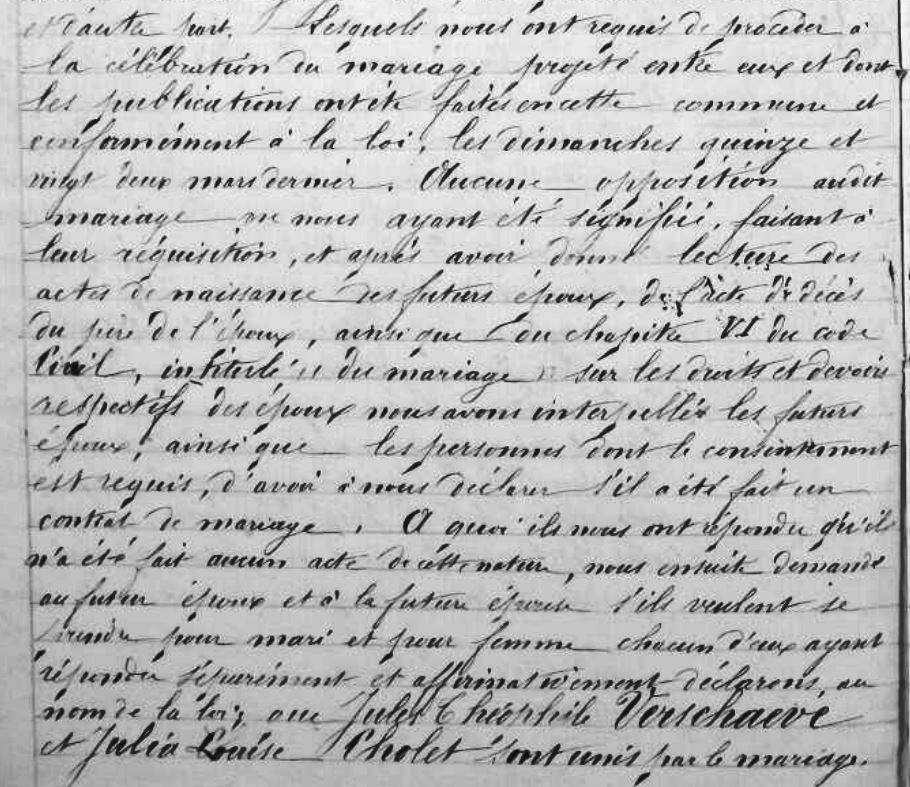 et d'autre part. Lesquels nous ont requis de procéder à
la célébration du mariage projeté entre eux et dont
les publications ont été faites en cette commune et
conformément à la loi, les dimanches quinze et
vingt deux mars dernier. Aucune opposition audit
mariage ne nous ayant été signifiée, faisant à
leur réquisition, et après avoir donné lecture des
actes de naissance des futurs époux, de l'acte de décès
du père de l'époux, ainsi que du chapitre VI du code
Civil, intitulé " du mariage " sur les droits et devoirs
respectifs des époux nous avons interpellés les futurs
époux, ainsi que les personnes dont le consentement
est requis, d'avoir à nous déclarer s'il a été fait un
contrat de mariage. A quoi ils nous ont répondu qu'il
n'a été fait aucun acte de cette nature, nous ensuite demandé
au futur époux et à la future épouse s'ils veulent se
prendre pour mari et pour femme chacun d'eux ayant
répondu séparément et affirmativement déclarons, au
nom de la loi, que Jules Théophile Verschaeve
et Julia Louise Cholet sont unis par le mariage.